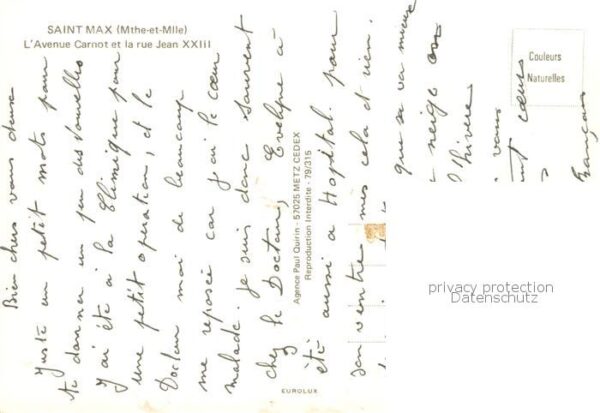 SAINT MAX (Mthe-et-Mlle)
L'Avenue Carnot et la rue Jean XXIII
Couleurs
Naturelles
Agence Paul Quirin - 57025 METZ CEDEX
Reproduction Interdite - 79/315
EUROLUX
Bien chers vous deux
Juste un petit mots pour
te donner un peu des nouvelles
J'ai été a la Clinique pour
une petit operation, et le
Docteur moi de beaucoup
me reposée car j'ai le cœur
malade. Je suis donc souvent
chez le Docteur, Evelyne à
été aussi a Hopital pour
son ventre mes cela d rien.
que sa va mieux
neige
l'hiver
vous
cœurs
François
privacy protection
Datenschutz